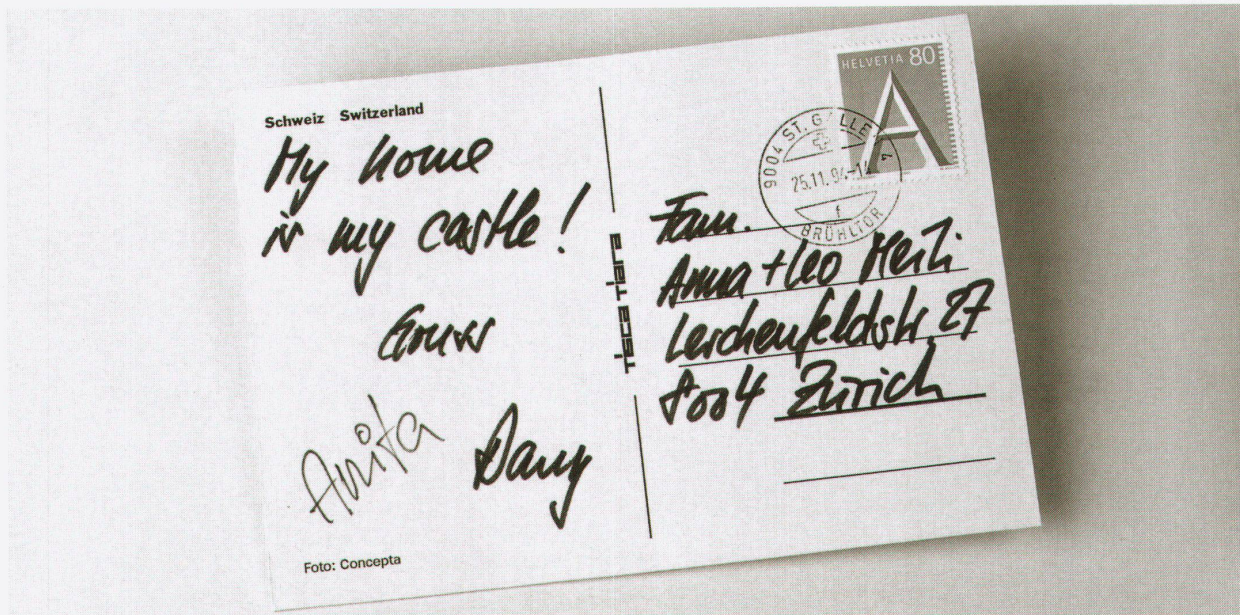 Schweiz Switzerland
My home
is my castle!
Gruss
Anita
Dany
Foto: Concepta
tisca tiara
HELVETIA 80
A
9004 ST. GALLEN 7
25.11.94-14
f
BRÜHLTOR
Fam.
Anna + Leo
Lerchenfeldstr. 27
8004 Zürich